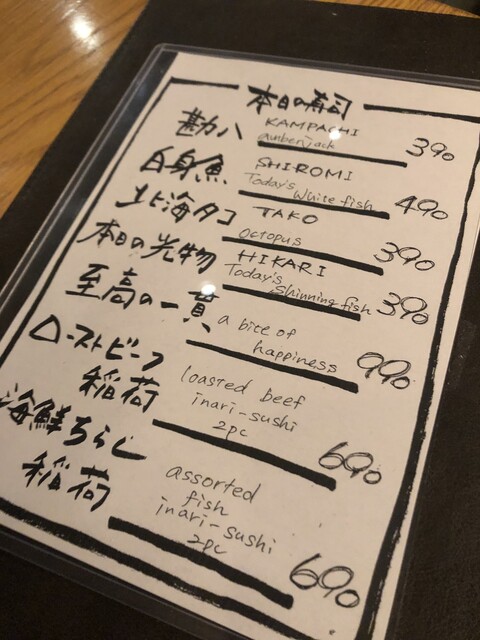 本日の寿司
勘八 KAMPACHI
amberjack 390
白身魚 SHIROMI
Today's White fish 490
北海タコ TAKO
Octopus 390
本日の光物 HIKARI
Today's Shinning fish 390
至高の一貫 a bite of
happiness 990
ローストビーフ
稲荷 loasted beef
inari-sushi
2pc 690
海鮮ちらし
稲荷 assorted
fish
inari-sushi
2pc 690